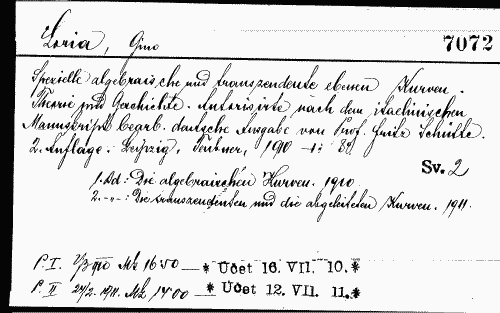 Loria, Gino
7072
Spezielle algebraische und transzendente ebenen Kurven.
Theorie und Geschichte. Autorisirte nach dem italienischen
Manuscript bearb. deutsche Ausgabe von Prof. Fritz Schütte.
2. Auflage. Leipzig, Teubner, 1910-11: 8º
Sv. 2
1. Bd.: Die algebraischen Kurven. 1910.
2. -"-: Die transzendenten und die abgeleiteten Kurven. 1911.
P. I. 1910 Mk 16 50 — * Účet 16. VII. 10.*
P. II 1911. Mk 14 00 — * Účet 12. VII. 11.*